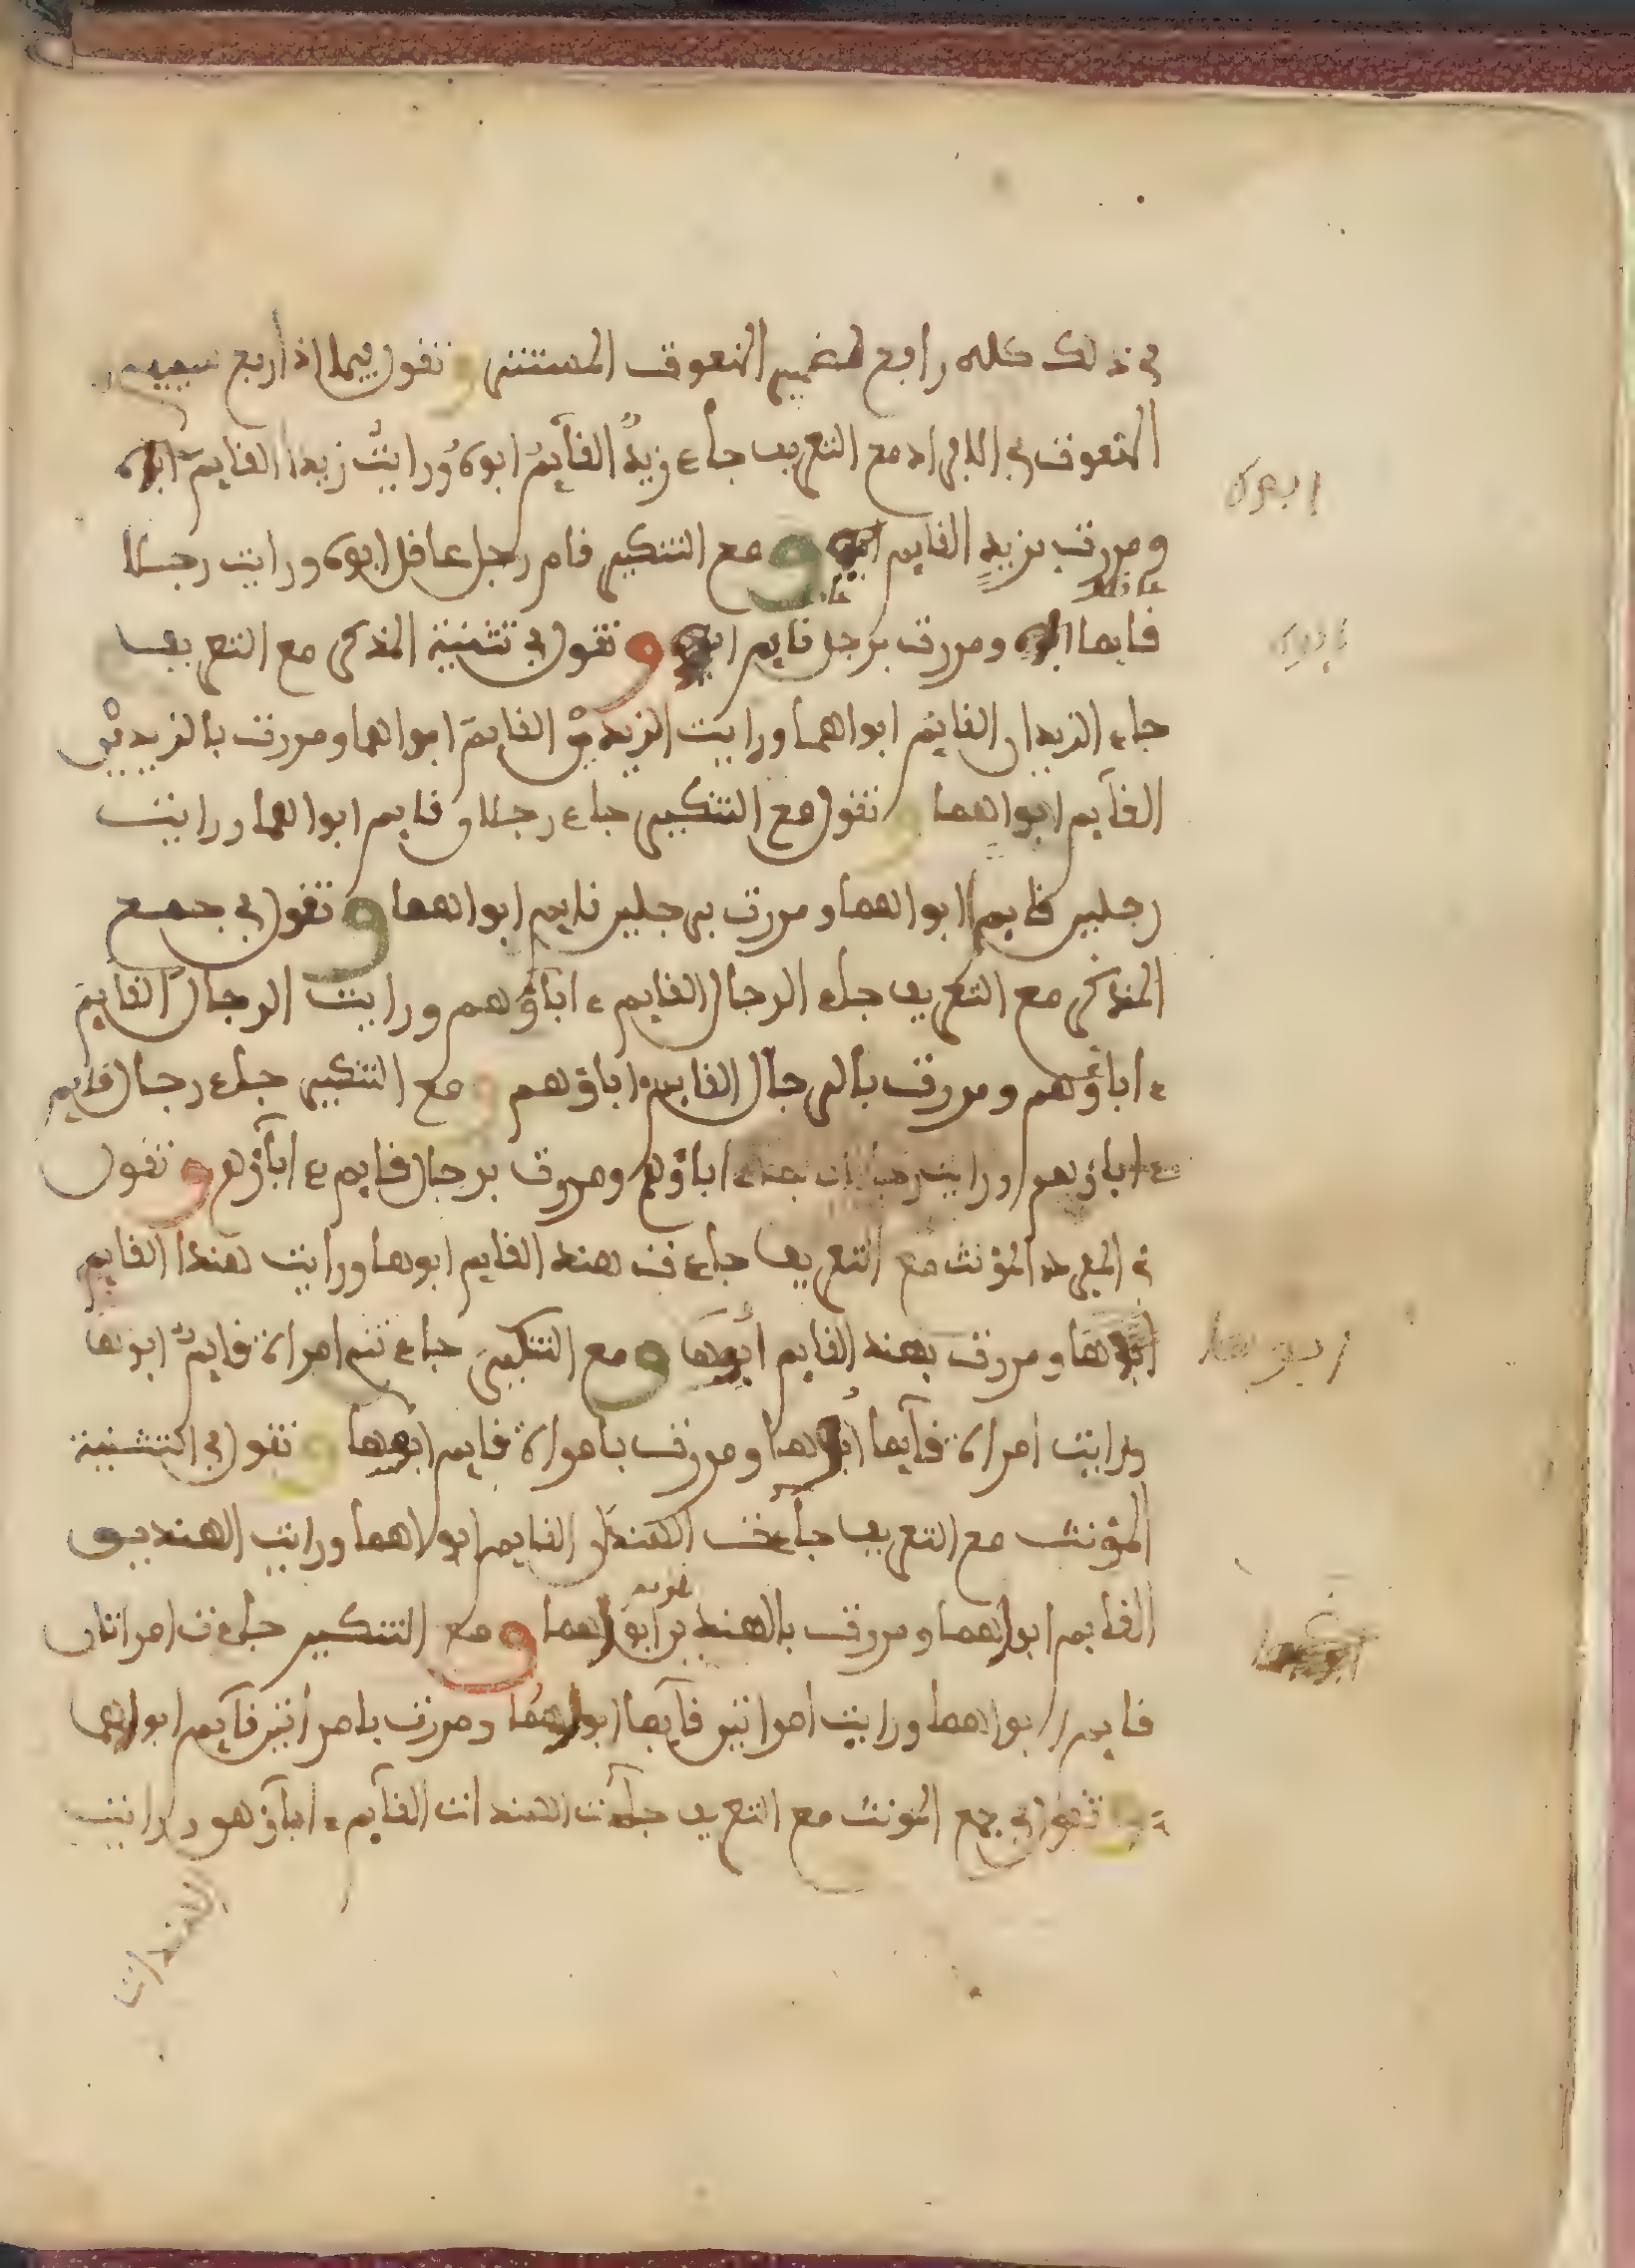 في ذلك كله رافع لضمير المنعوت المستتر وتقول فيما اذا رفع سببي
المنعوت في الافراد مع التعريف جاء زيدٌ القآيمُ ابوه ورايتُ زيدا القايمَ ابوه
ومررت بزيدٍ القايم ابوه ومع التنكير قام رجل عاقل ابوه ورايت رجلا
قايما ابوه ومررت برجل قايم ابوه وتقول في تثنية المذكر مع التعريف
جاء الزيدان القايمُ ابواهما ورايت الزيديْن القايمَ ابواهما ومررت بالزيديْن
القآيم ابواهما وتقول مع التنكير جاء رجلان قايم ابواهما ورايت
رجلين قايما ابواهما ومررت برجلين قايم ابواهما وتقول في جمع
المذكر مع التعريف جاء الرجال القايم ء اباؤهم ورايت الرجال القايم
ء اباؤهم ومررت بالرجال القايم ء اباؤهم ومع التنكير جاء رجال قايم
ء اباؤهم ورايت ء اباؤهم ومررت برجال قايم ء اباؤهم وتقول
في المفرد المؤنث مع التعريف جاءت هند القايم ابوها ورايت هندا القايم
ابوها ومررت بهند القايم ابوها ومع التنكير جاءتنِ امراة قايمٌ ابوها
ورايت امراة قآيما ابوها ومررت بامراة قايم ابوها وتقول في التثنية
المؤنث مع التعريف جاءت الهندان القايم ابواهما ورايت الهندين
القايم ابواهما ومررت بالهندين ابواهما ومع التنكير جاءت امراتان
قايم ابواهما ورايت امراتين قآيما ابواهما ومررت بامراتين قآيم ابواهما
وتقول في جمع المونث مع التعريف جاءت الهندات القآيم ء اباؤهن ورايت
الهندات
ابوه
ابوها